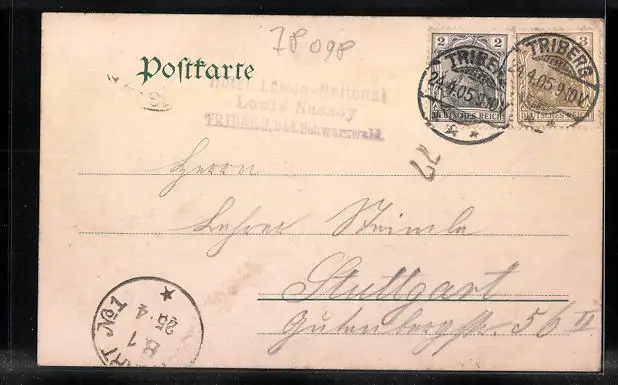 78 098
Postkarte
Hotel Löwen-National
Louis Nussoy
TRIBERG, Bad. Schwarzwald
2 2
DEUTSCHES REICH
3
DEUTSCHES REICH
TRIBERG
24.4.05.9-10V.
TRIBERG
24.4.05.9-10V.
Herrn
Lehrer Steimle
Stuttgart
Gutenbergstr. 56 II
25.4